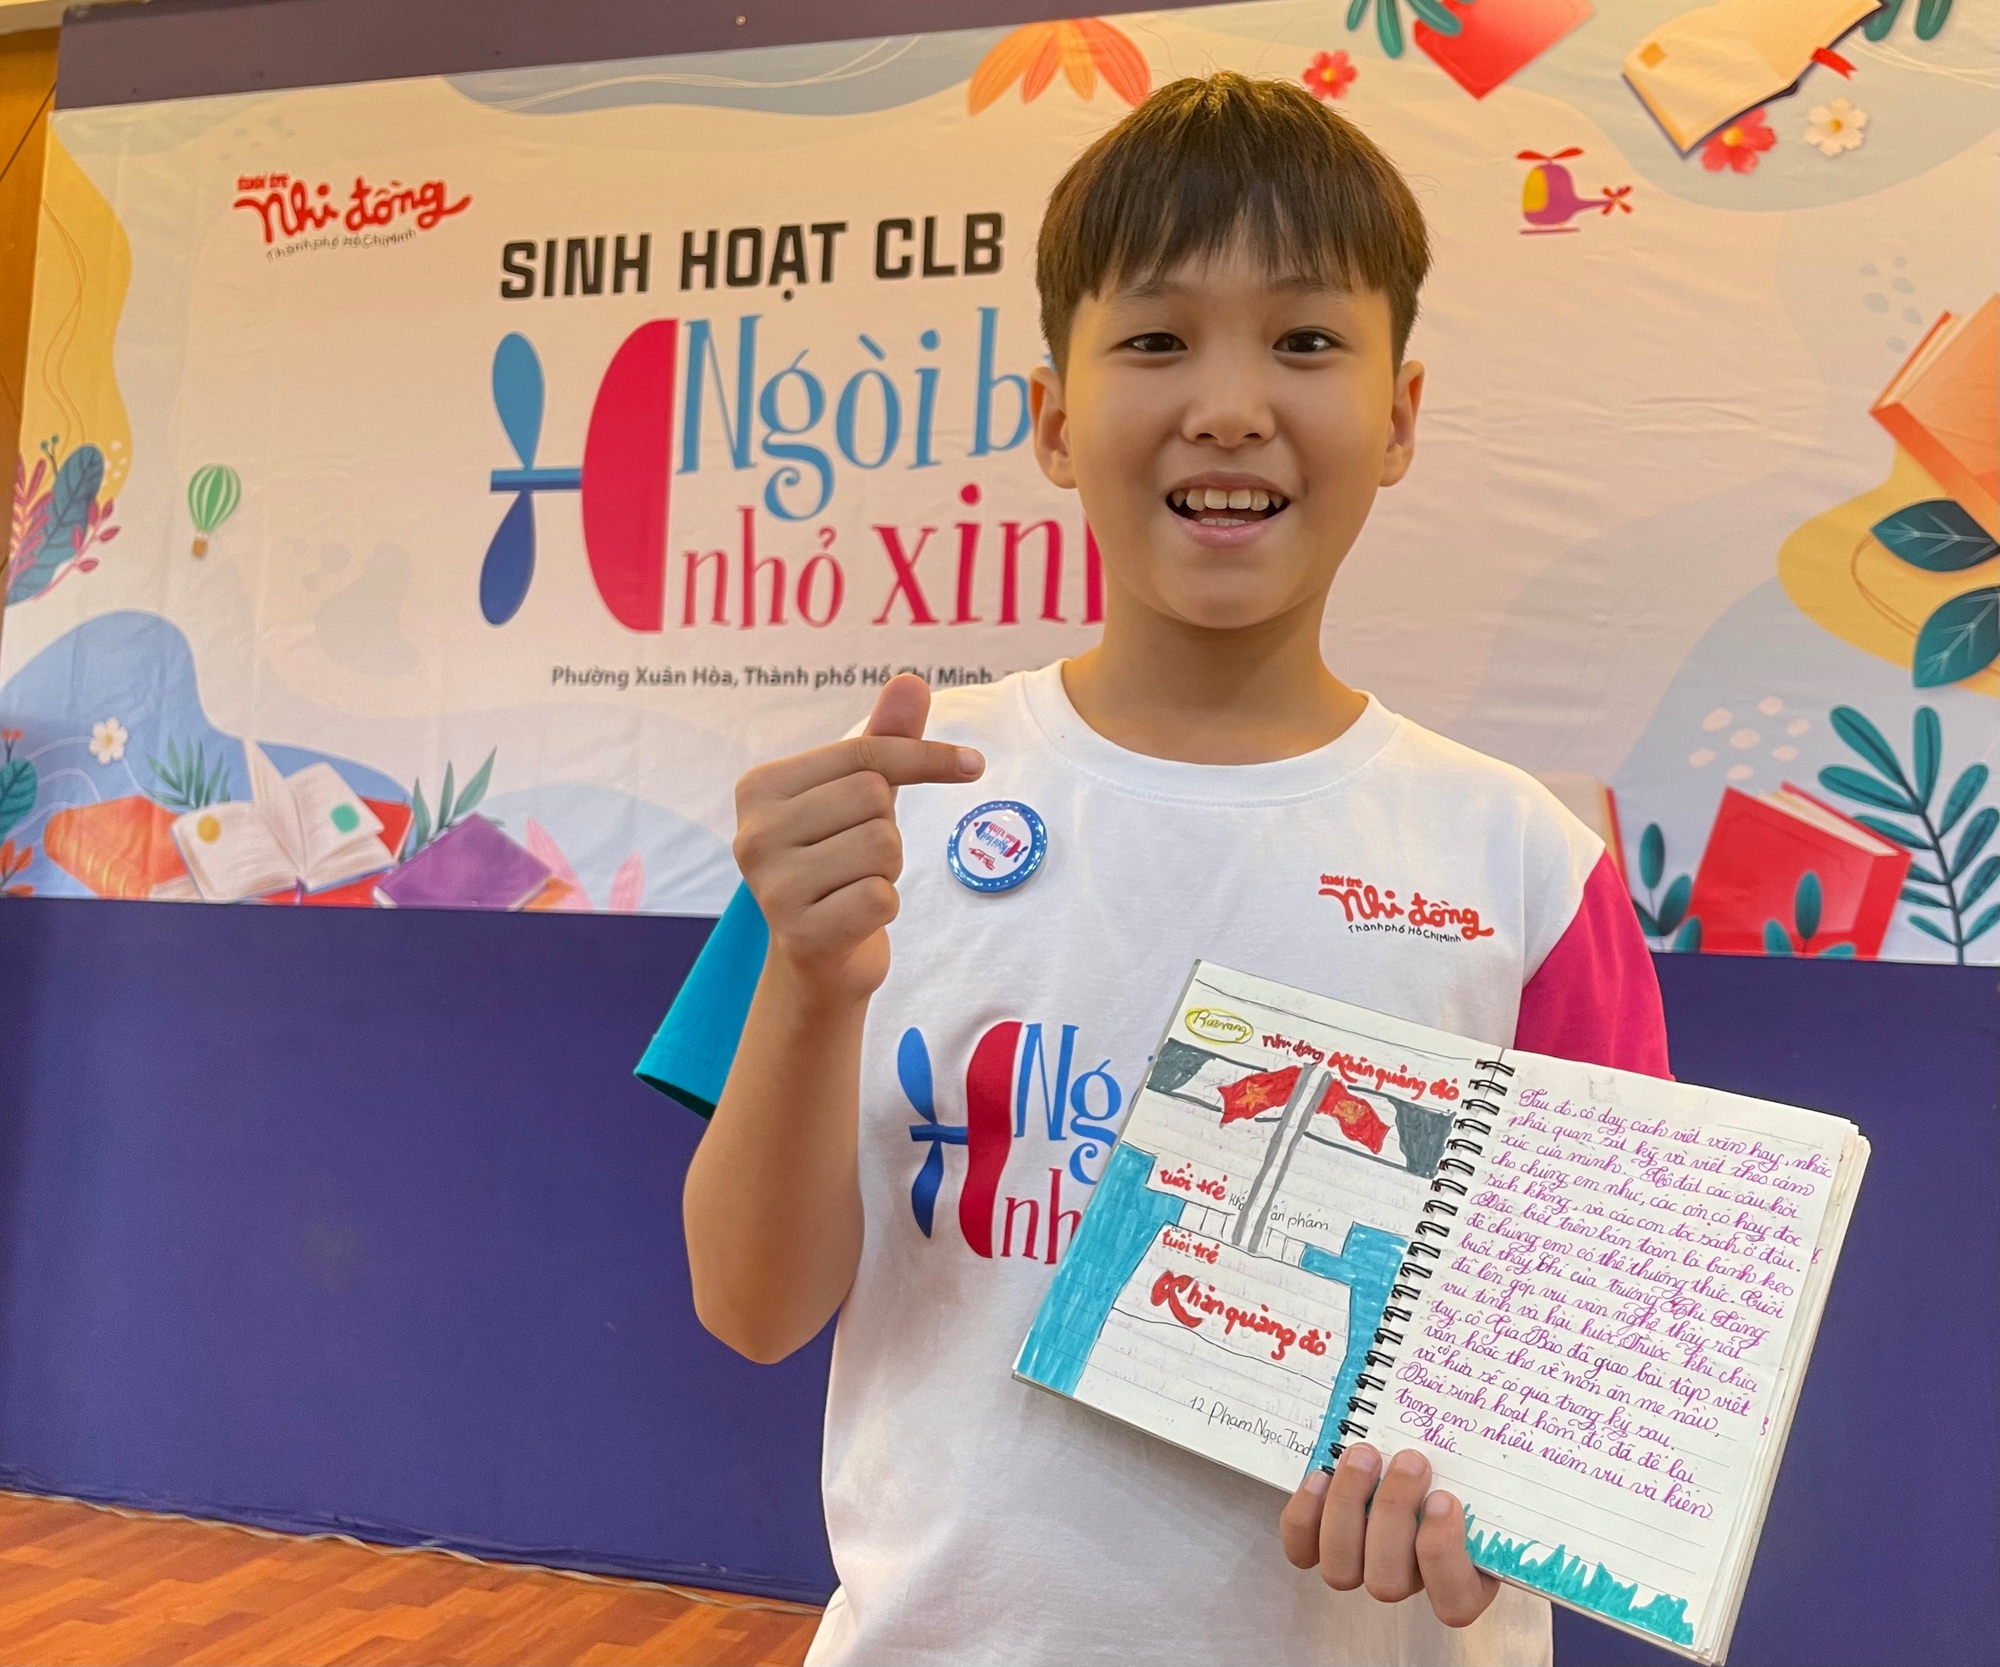 tuổi trẻ
Nhi đồng
Thành phố Hồ Chí Minh
SINH HOẠT CLB
Ngòi b
nhỏ xin
Phường Xuân Hòa, Thành phố Hồ Chí Minh,
tuổi trẻ
Nhi đồng
Thành phố Hồ Chí Minh
Ng
nh
nhi đồng Khăn quàng đỏ
tuổi trẻ
ấn phẩm
tuổi trẻ
Khăn quàng đỏ
12 Phạm Ngọc Thạch
Sau đó, cô dạy cách viết văn hay, nhắc
phải quan sát kỹ và viết theo cảm
xúc của mình. Cô đặt các câu hỏi
cho chúng em như, các con có hay đọc
sách không, và các con đọc sách ở đâu.
Đặc biệt trên bàn toàn là bánh kẹo
để chúng em có thể thưởng thức. Cuối
buổi thầy Chí của trường Chi Lăng
đã lên góp vui văn nghệ thầy rất
vui tính và hài hước. Trước khi chia
tay, cô Gia Bảo đã giao bài tập viết
văn hoặc thơ về món ăn mẹ nấu,
và cô hứa sẽ có quà trong kỳ sau.
Buổi sinh hoạt hôm đó đã để lại
trong em nhiều niềm vui và kiến
thức.